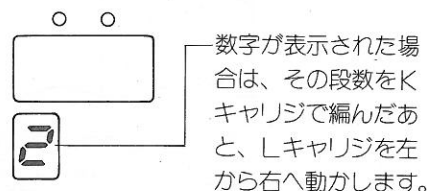 数字が表示された場
合は、その段数をK
キャリジで編んだあ
と、Lキャリジを左
から右へ動かします。
2